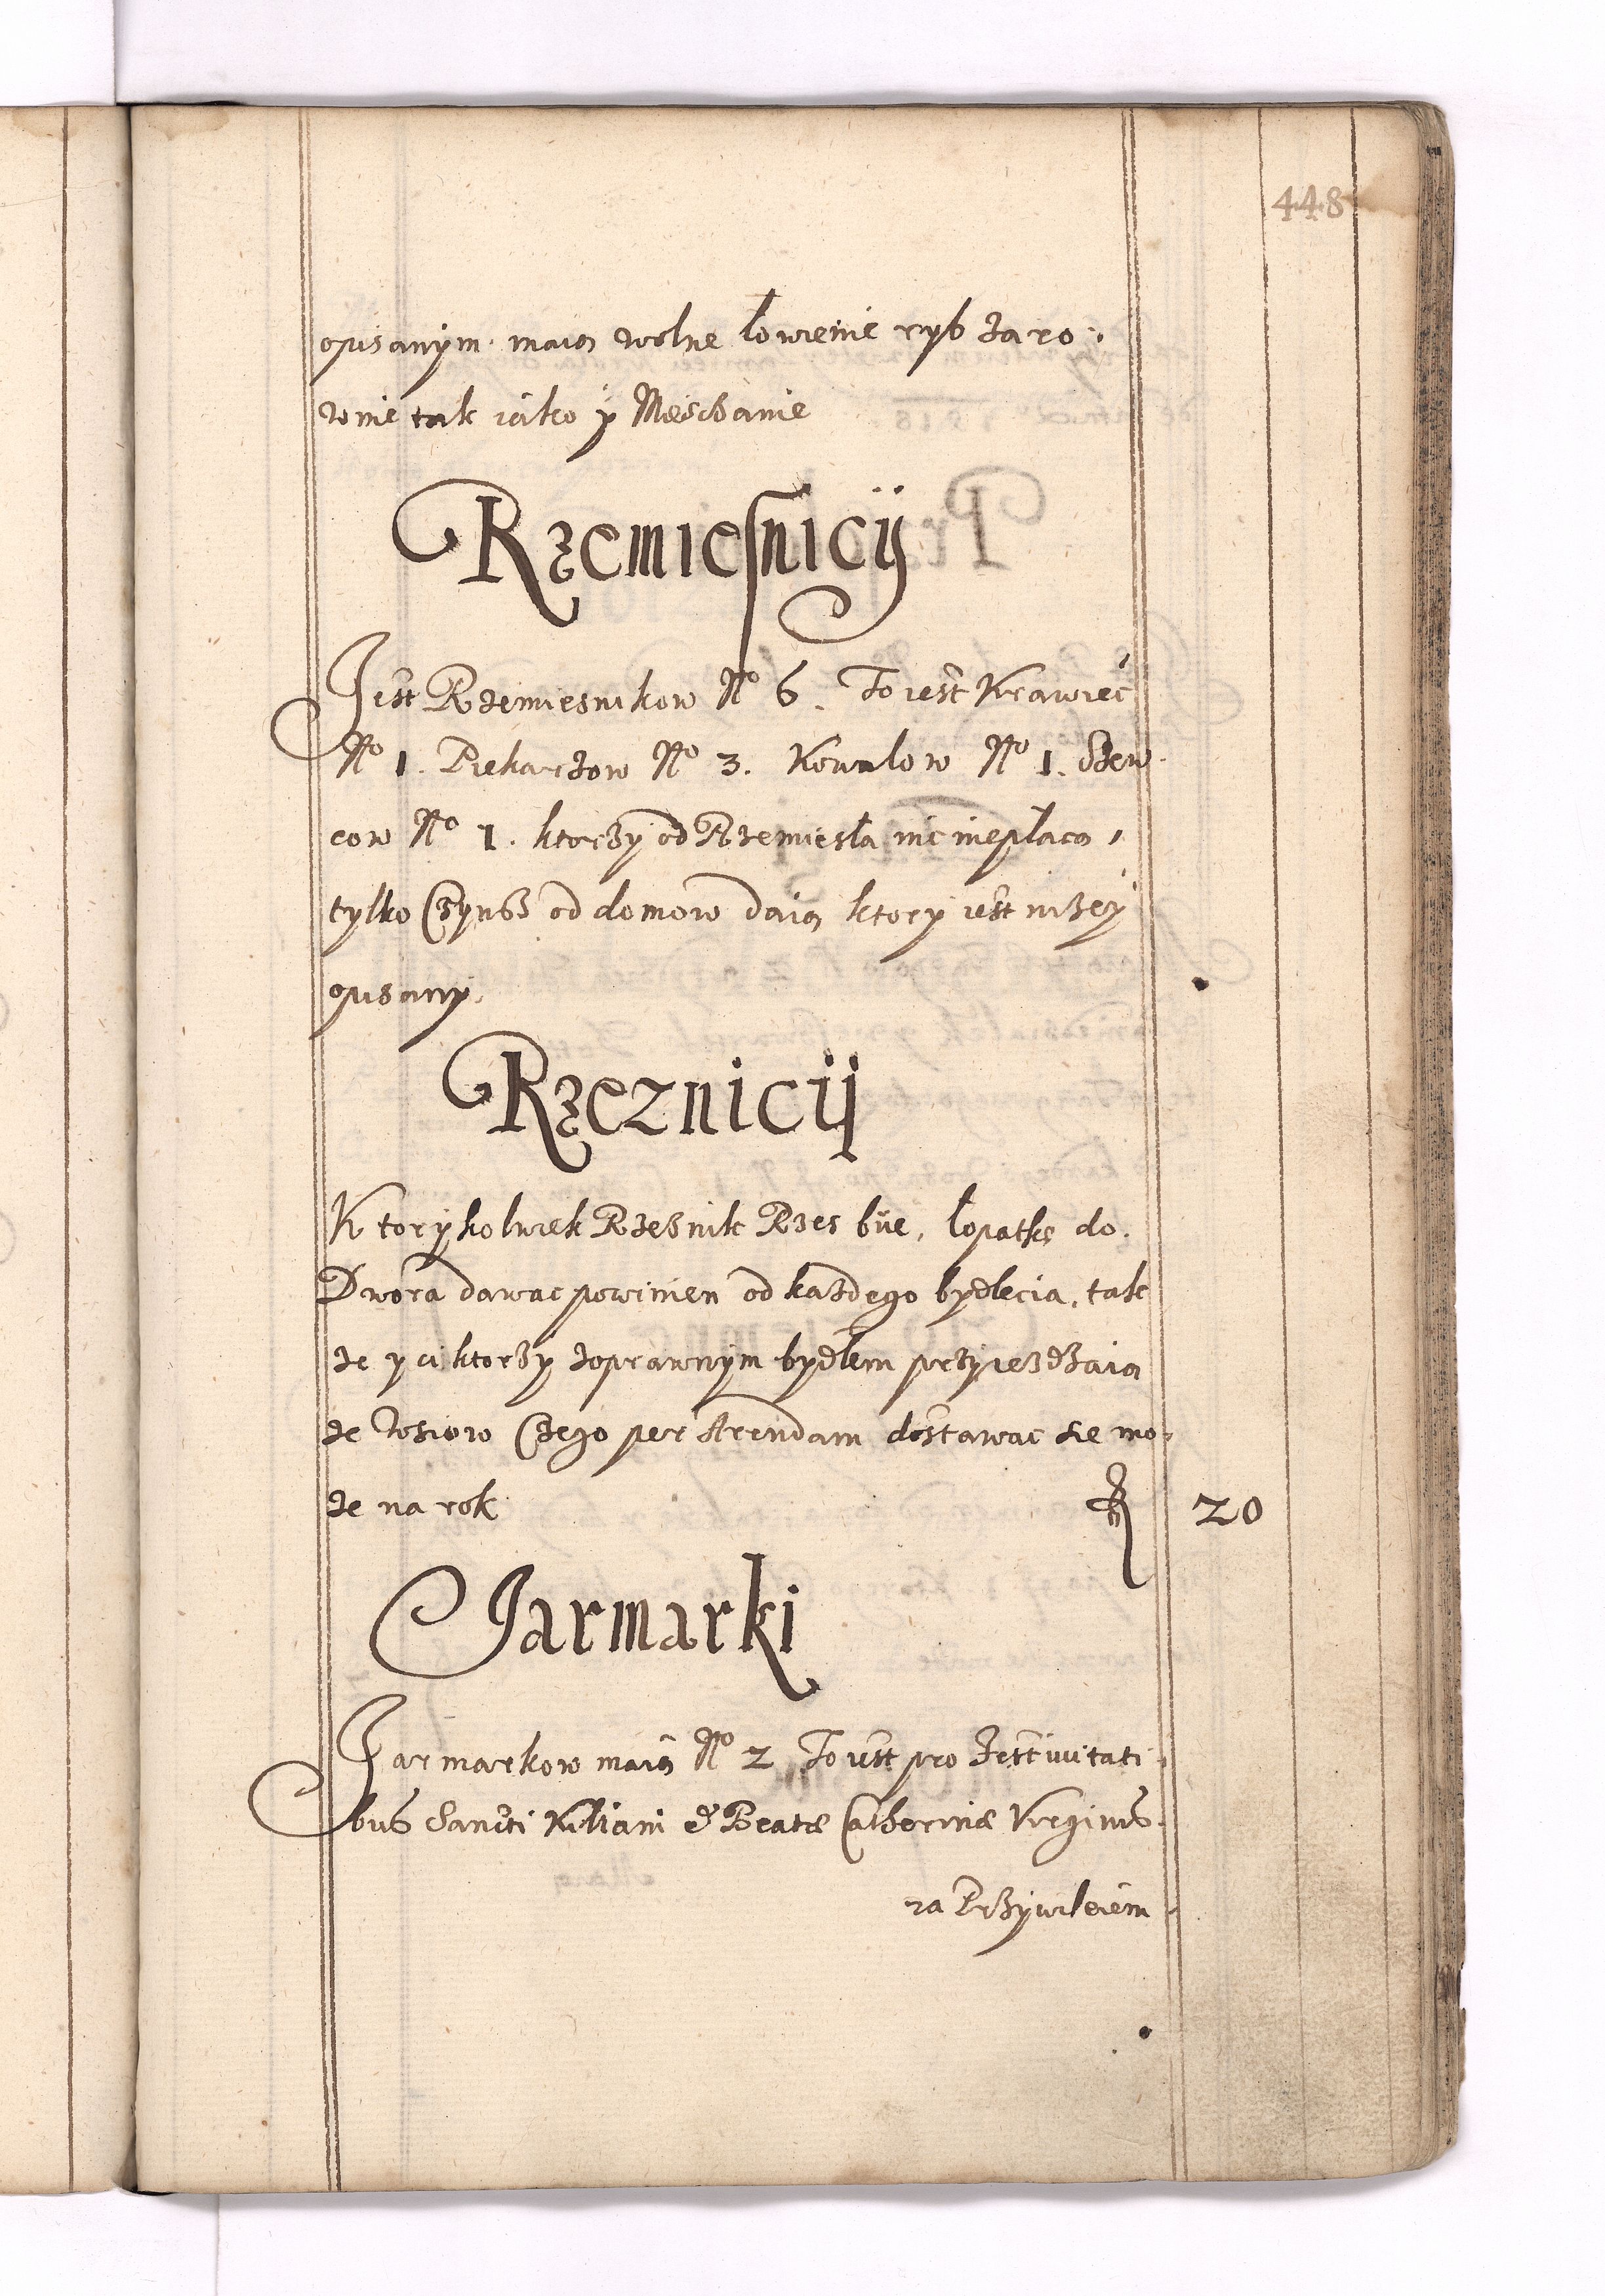 448
opisanym. maią wolne łowienie ryb zaro:
wnie tak iako y Miesczanie
Rzemiesnicÿ
Jest Rzemiesnikow No 6. To iest Krawiec
No 1. Piekarzow No 3. Kowalow No 1. Szew.
cow No 1. ktorzy od Rzemiesła nic niepłacą,
tylko Czynsz od domow daią ktory iest niżey
opisany.
Rzeznicÿ
Ktorykolwiek Rzeznik Rzes bÿe, łopatkę do.
Dwora dawac powinien od każdego bydlecia, tak
ze y ci ktorzy zoprawnym bydłem przyiezdzaią
ze Wsiow Czego per Arendam dostawac sie mo:
ze na rok fl 20
Jarmarki
Jarmarkow maią No 2 To iest pro Festivitati:
bus Sancti Kiliani & Beatæ Catherinæ Virginis.
za Przywileiem